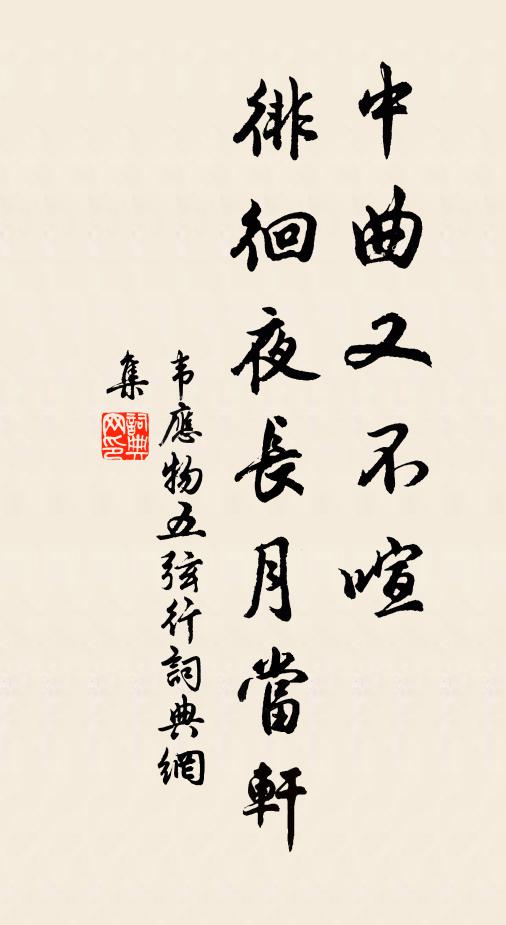 中曲又不喧
徘徊夜長月當軒
韦應物五弦行詞典網
集
詞典
网印